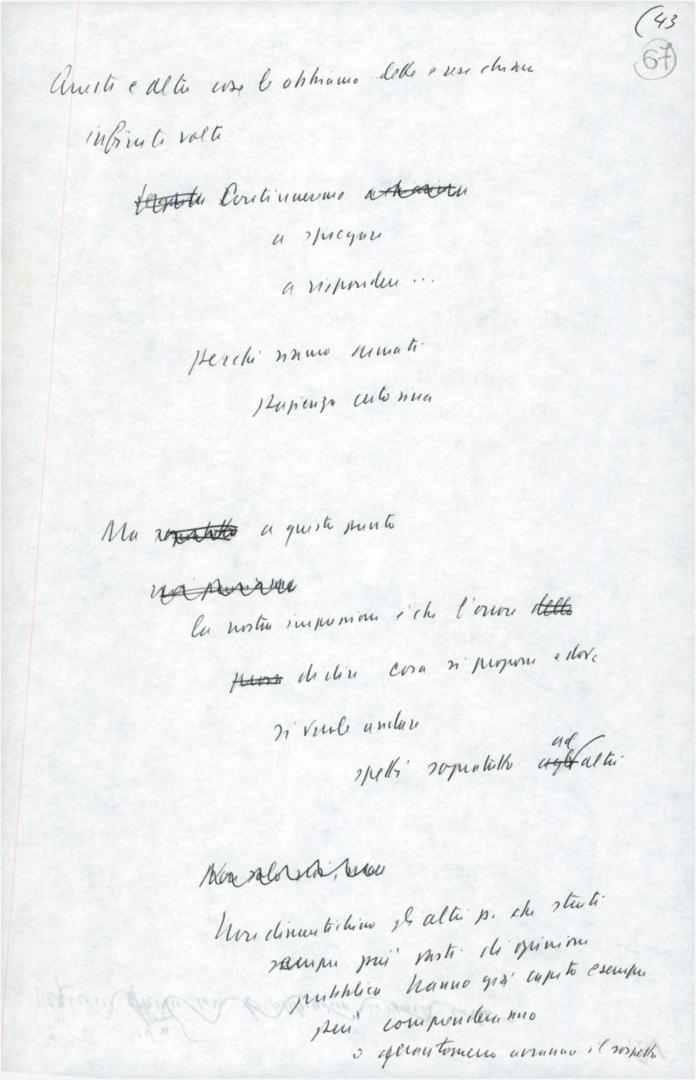 (43
67
Queste e altre cose le abbiamo dette e
infinite volte
Continueremo
a spiegare
a rispondere ...
perché siamo armati
pazienza certosina
Ma soprattutto a questo punto
noi pensiamo
la nostra impressione è che l'onere della
di dire cosa si propone e dove
si vuole andare
spetti sopratutto agli ad altri
Non
Non dimentichino gli altri p. che strati
sempre più vasti di opinione
pubblica hanno già capito e sempre
più comprenderanno
o quantomeno avranno il sospetto